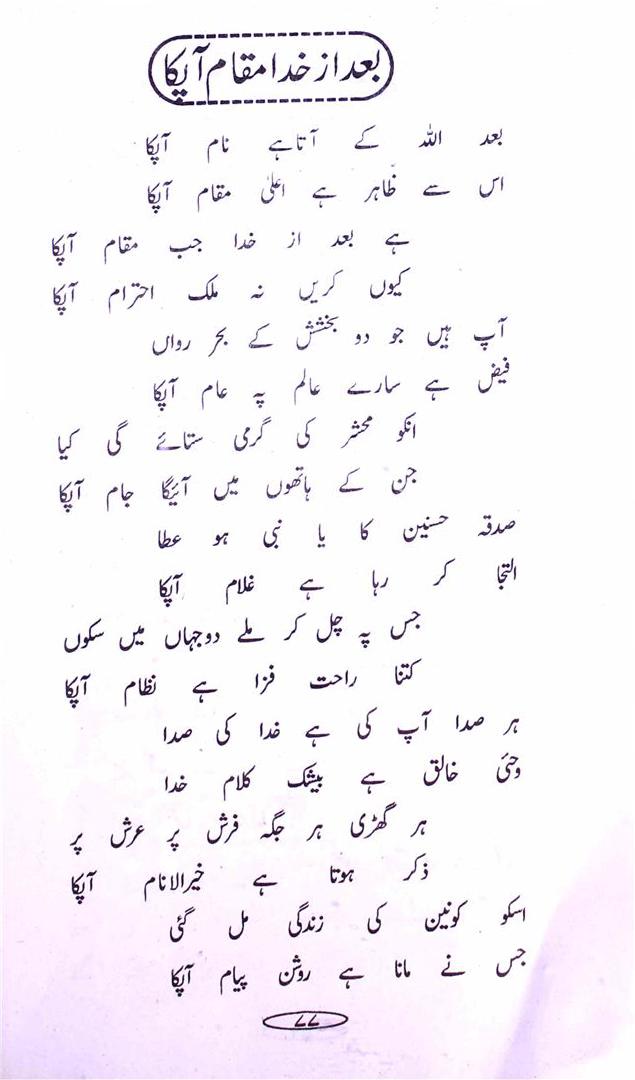 بعد از خدا مقام آپکا
بعد اللہ کے آتا ہے نام آپکا
اس سے ظاہر ہے اعلیٰ مقام آپکا
ہے بعد از خدا جب مقام آپکا
کیوں کریں نہ ملک احترام آپکا
آپ ہیں جو دو بخشش کے بحر رواں
فیض ہے سارے عالم پہ عام آپکا
انکو محشر کی گرمی ستائے گی کیا
جن کے ہاتھوں میں آئیگا جام آپکا
صدقہ حسنین کا یا نبی ہو عطا
التجا کر رہا ہے غلام آپکا
جس پہ چل کر ملے دوجہاں میں سکوں
کتنا راحت فزا ہے نظام آپکا
ہر صدا آپ کی ہے خدا کی صدا
وحئ خالق ہے بیشک کلام خدا
ہر گھڑی ہر جگہ فرش پر عرش پر
ذکر ہوتا ہے خیرالانام آپکا
اسکو کونین کی زندگی مل گئی
جس نے مانا ہے روشن پیام آپکا
۷۷